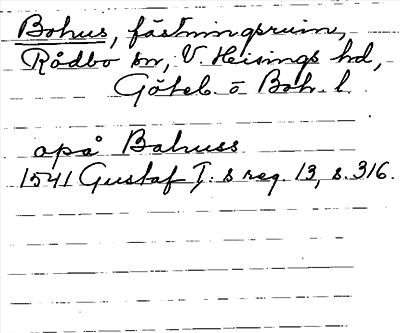 Bohus, fästningsruin,
Rådbo sn, V. Hisings hd,
Göteb. o Boh. l.
opå Bahuss
1541 Gustaf I: s reg. 13, s. 316.